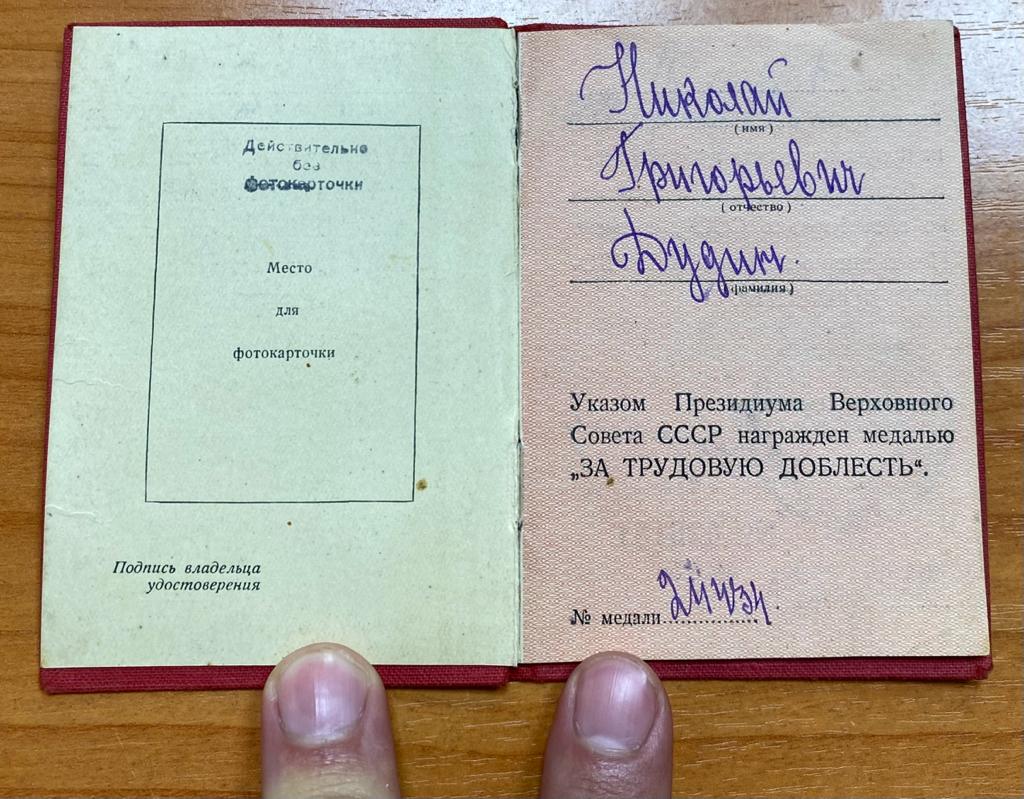 Действительно
без
фотокарточки
Место
для
фотокарточки
Подпись владельца
удостоверения
Николай
(имя)
Григорьевич
(отчество)
Дудин.
(фамилия)
Указом Президиума Верховного
Совета СССР награжден медалью
„ЗА ТРУДОВУЮ ДОБЛЕСТЬ“.
№ медали